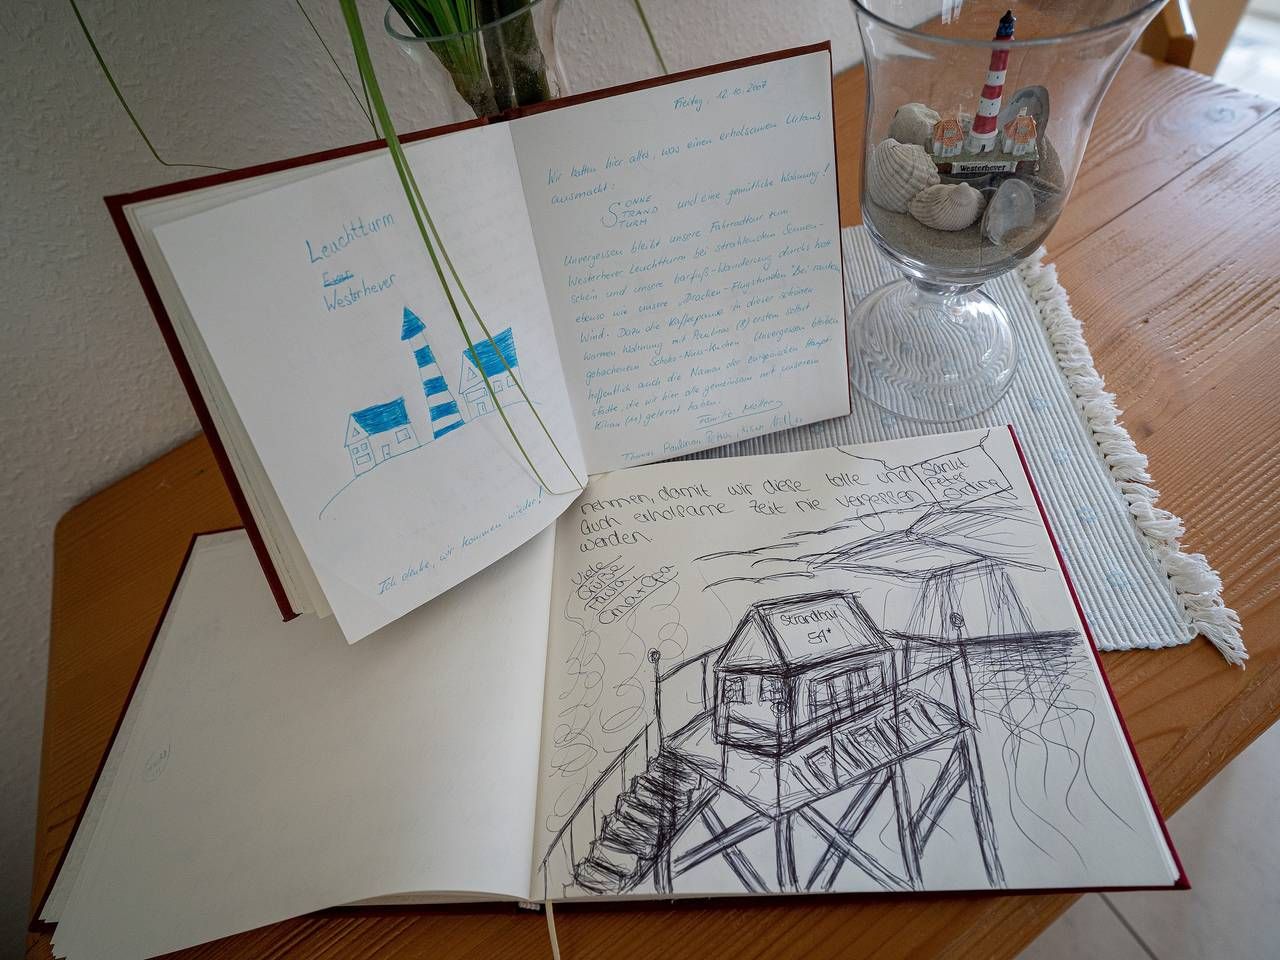 Leuchtturm
Westerhever
Ich denke, wir kommen wieder!
Freitag, 12.10.2007
Wir hatten hier alles, was einen erholsamen Urlaub
ausmacht:
SONNE
STRAND
TURM
und eine gemütliche Wohnung!
Unvergessen bleibt unsere Fahrradtour zum
Westerhever Leuchtturm bei strahlendem Sonnen-
schein und unsere barfuß-Wanderung durchs Watt
ebenso wie unsere "Drachen-Flugstunden" bei
Wind. Dazu die Kaffeepause in dieser schönen
warmen Wohnung mit Paulinas ersten selbst
gebackenem Schoko-Nuss-Kuchen. Unvergessen bleiben
hoffentlich auch die Namen der europäischen Haupt-
städte, die wir hier alle gemeinsam mit unserem
Kilian gelernt haben.
Familie
Thomas
Westerhever
nehmen, damit wir diese tolle und
auch erholsame Zeit nie vergessen
werden
Viele
Grüße
Oma+Opa
Sankt
Peter
Ording
Strandbar
54°